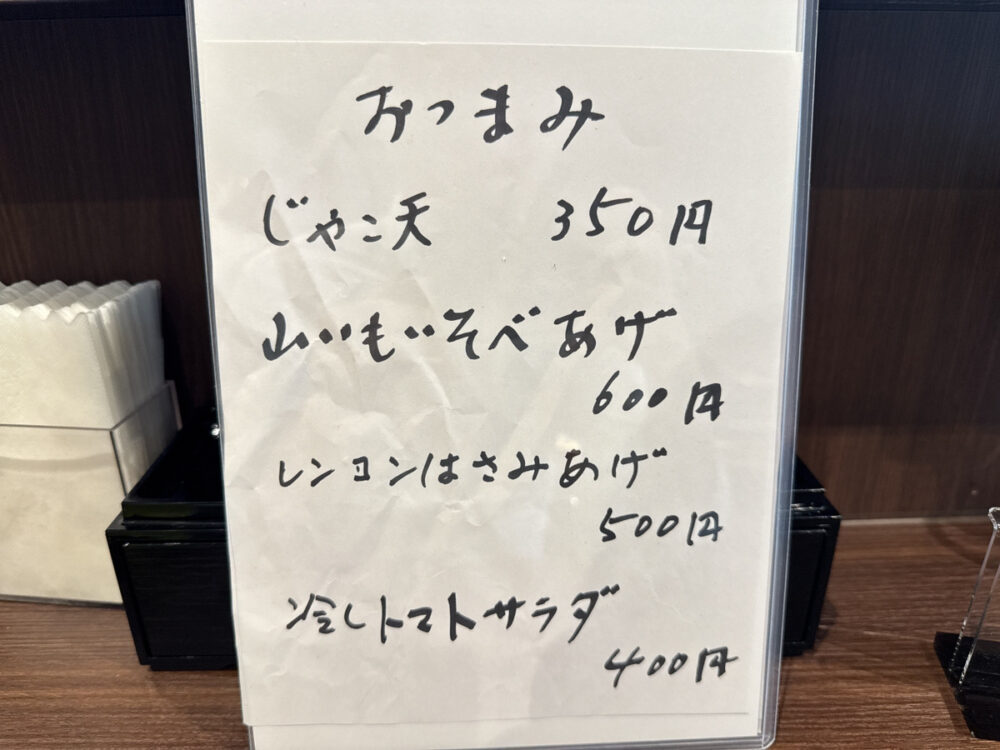 おつまみ
じゃこ天 350円
山いもいそべあげ
600円
レンコンはさみあげ
500円
冷しトマトサラダ
400円